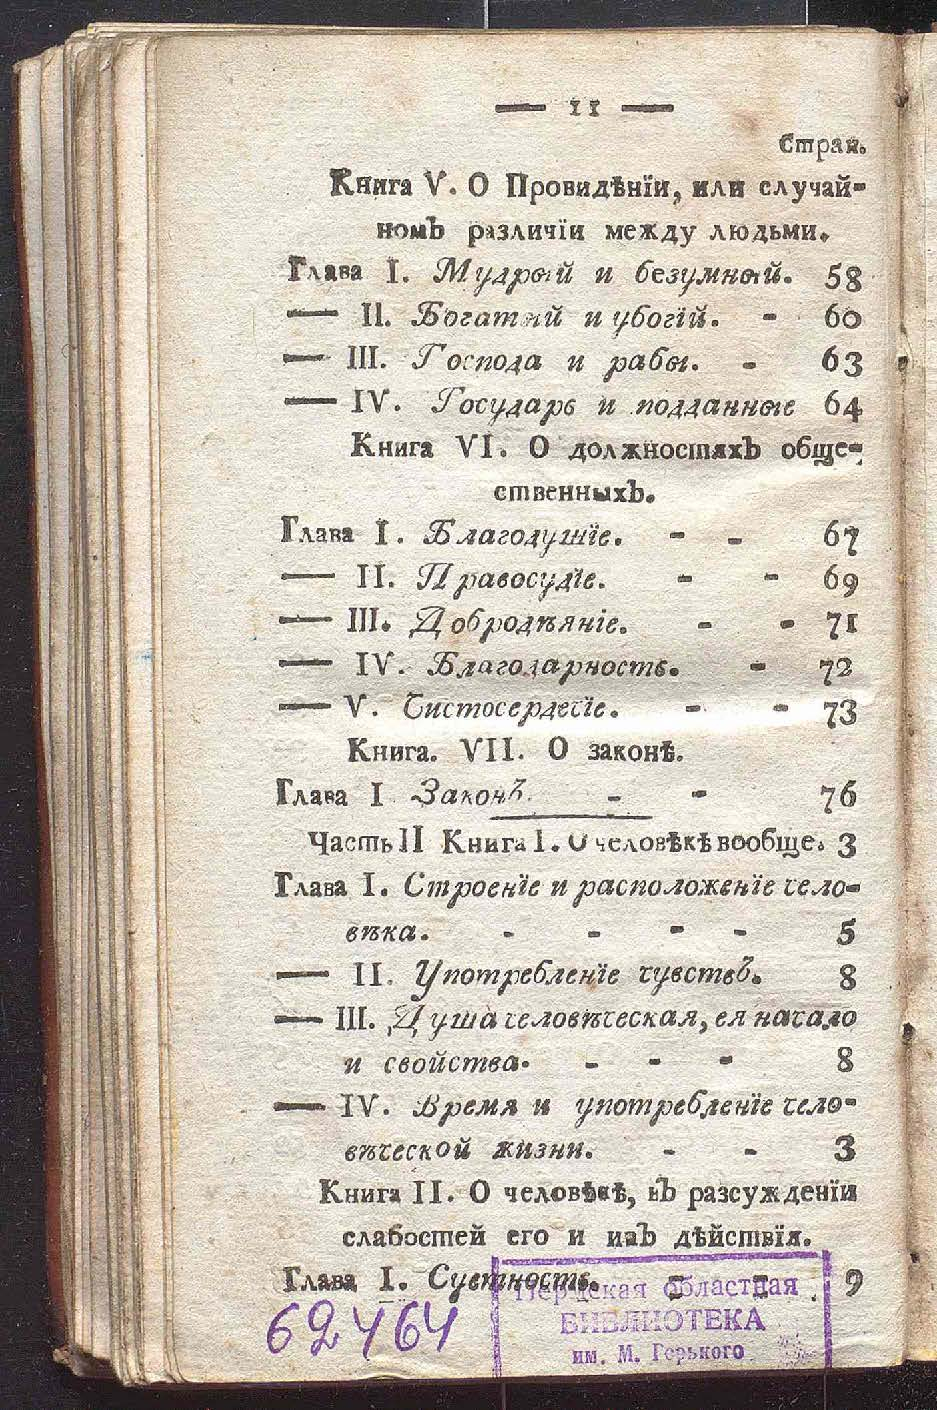 — 11 —
Стран.
Книга V. О Провидѣнїи, или случай-
номЪ различїи между людьми.
Глава I. Мудрый и безумный. 58
— II. Богатый и убогїй. - 60
— III. Господа и рабы. - 63
— IV. Государь и подданные 64
Книга VI. О должностяхЪ обще-
ственныхЪ.
Глава I. Благодушїе. - - 67
— II. Правосудїе. - - 69
— III. Добродѣянїе. - - 71
— IV. Благодарность. - 72
— V. Чистосердечїе. - - 73
Книга. VII. О законѣ.
Глава I Законъ. - - 76
Часть II Книга I. О человѣкѣ вообще. 3
Глава I. Строенїе и расположенїе чело-
вѣка. - - - - 5
— II. Употребленїе чувствъ. 8
— III. Душа человѣческая, ея начало
и свойства. - - - 8
— IV. Время и употребленїе чело-
вѣческой жизни. - - 3
Книга II. О человѣкѣ, вЪ разсужденїи
слабостей его и ихЪ дѣйствїя.
Глава I. Суетность. - - 9
62464
Пермская областная
БИБЛИОТЕКА
им. М. Горького